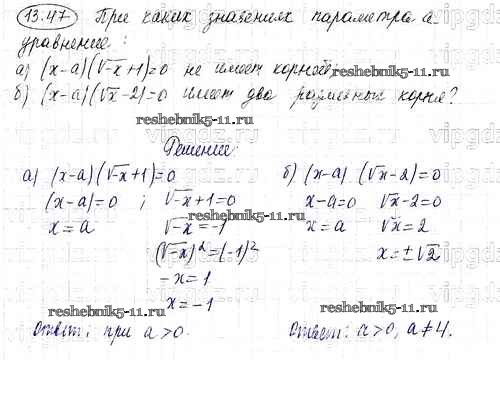 13.47 При каких значениях параметра а
уравнение:
а) (x-a)(√-x+1)=0 не имеет корней;
б) (x-a)(√x-2)=0 имеет два различных корня?
Решение
а) (x-a)(√-x+1)=0
(x-a)=0 ; √-x+1=0
x=a √-x=-1
(√-x)²=(-1)²
-x=1
x=-1
Ответ: при a>0.
б) (x-a) (√x-2)=0
x-a=0 √x-2=0
x=a √x=2
x=±√2
Ответ: a>0, a≠4.
reshebnik5-11.ru
reshebnik5-11.ru
reshebnik5-11.ru
reshebnik5-11.ru
reshebnik5-11.ru
vipgdz.ru